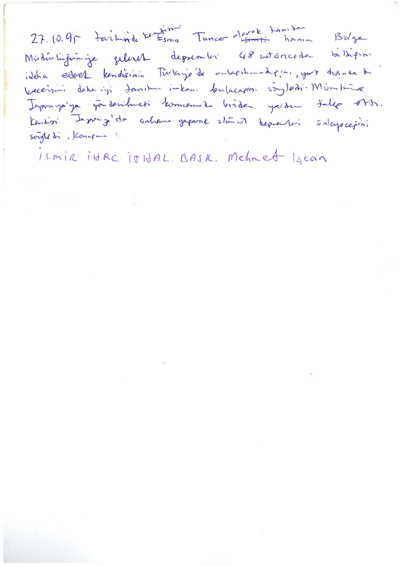 27.10.95 tarihinde kendisini Esma Tuncer olarak tanıtan hanım Bölge
Müdürlüğümüze gelerek depremleri 48 saat önceden bildiğini
iddia ederek kendisinin Türkiye'de anlaşılmadığını, yurt dışında bu
becerisini daha iyi tanıtma imkanı bulacağını söyledi. Mümkünse
Japonya'ya gönderilmesi konusunda bizden yardım talep etti.
Kendisi Japonya'da çalışma yaparak ölümcül depremleri önleyeceğini
söyledi. Konuşma
İZMİR İHRC. İTHAL. BAŞK. Mehmet İşcan